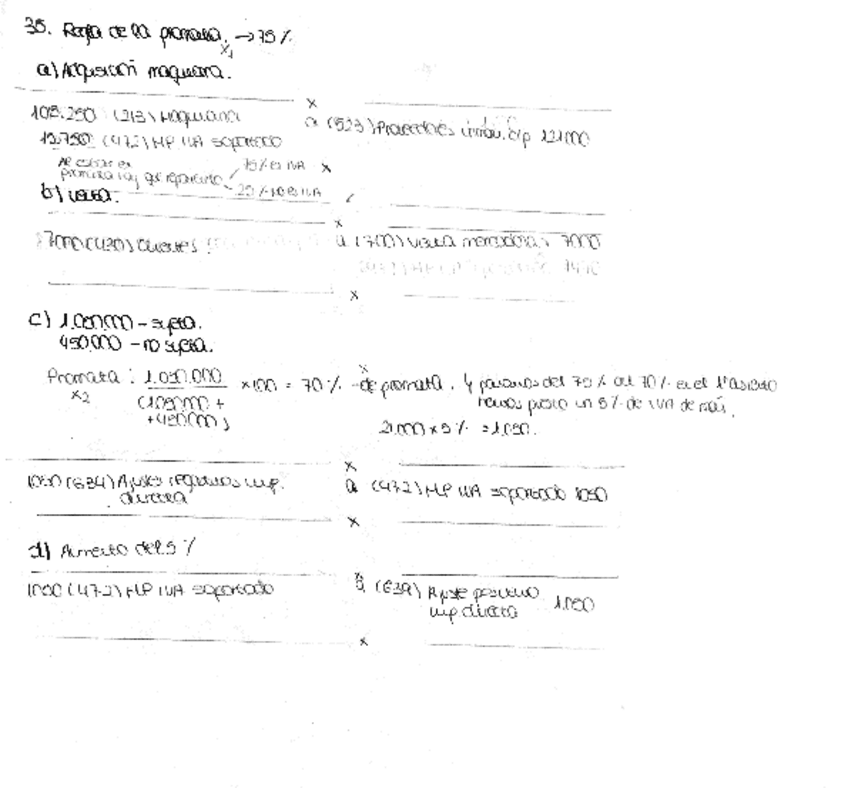 35. Regla de la prorrata. → 75%
x1
a) Adquisición maquinaria.
x
105.250 (213) Maquinaria
a (523) Proveedores inmov. c/p 121.000
15.750 (472) HP IVA soportado
prorrata hay que repartirlo
75% es IVA
x
25% no es IVA
b) Venta:
x
7000 (430) Clientes
a (700) Venta mercaderías 7000
1470
x
c) 1.050.000 – sujeta.
450.000 – no sujeta.
Prorrata: 1.050.000
x2
(1.050.000 +
+ 450.000)
x100 = 70% de prorrata. Y pasamos del 75% al 70% en el 1º asiento
hemos puesto un 5% de IVA de más.
21.000 x 5% = 1.050.
x
1050 (634) Ajustes negativos imp.
directa
a (472) HP IVA soportado 1050
x
d) Aumento del 5%
x
1050 (472) HP IVA soportado
a (639) Ajuste positivo
imp. directa
1.050
x